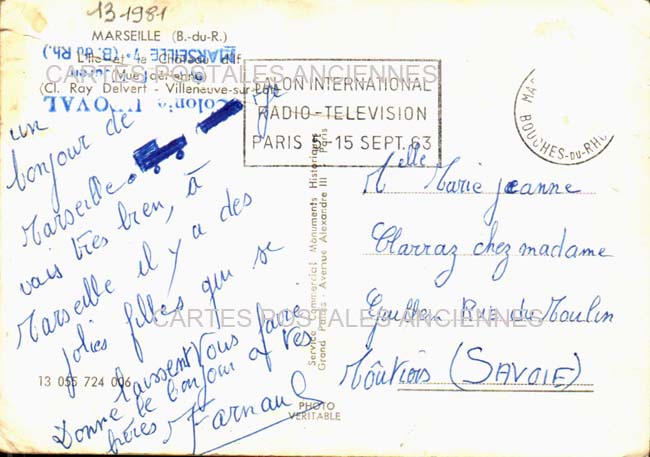 13-1981
MARSEILLE (B.-du-R.)
L'Ile et le Château d'If
(Vue aérienne)
(Cl. Ray Delvert - Villeneuve-sur-Lot)
MARSEILLE-7e (B. du Rh.)
Colonie UTOVAL
CARTES POSTALES ANCIENNES
SALON INTERNATIONAL
RADIO-TELEVISION
PARIS 5-15 SEPT. 63
BOUCHES-DU-RHONE
un
bonjour de
Marseille je
vais très bien, à
Marseille il y a des
jolies filles qui se
laissent
Vous faire
Donne le bonjour a tes
frères Farnaud
Service Commercial Monuments Historiques
Grand Palais - Avenue Alexandre III - Paris
Melle Marie jeanne
Clarraz chez madame
Rue du Moulin
Moûtiers (SAVOIE)
CARTES POSTALES ANCIENNES
13 055 724 006
PHOTO
VERITABLE